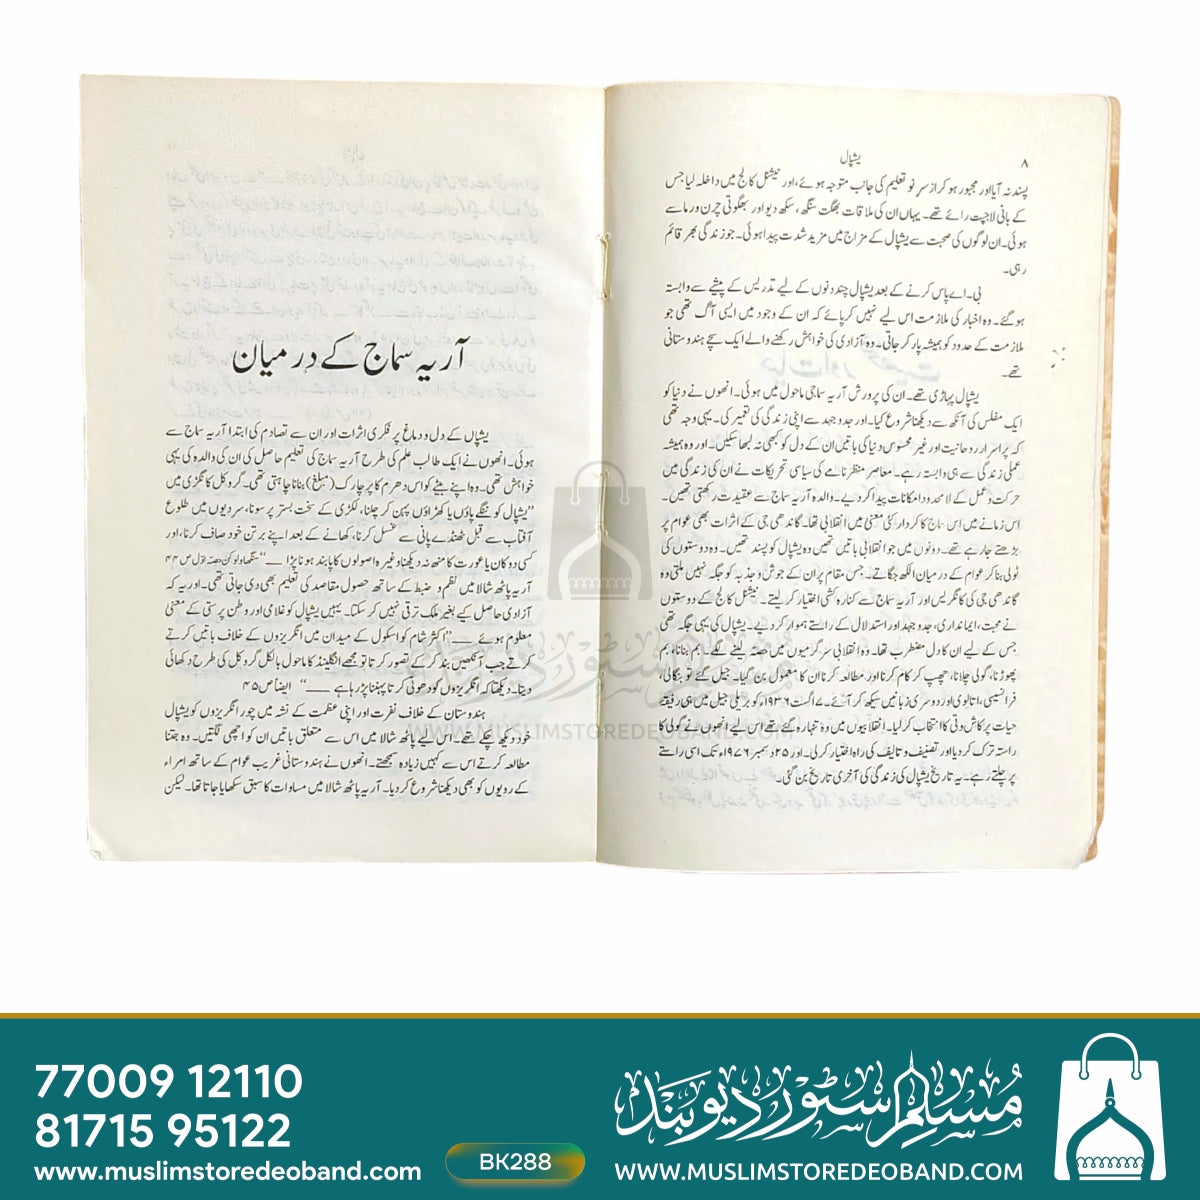 ۸
یشپال
پسند نہ آیا اور مجبور ہو کر از سر نو تعلیم کی جانب متوجہ ہوئے، اور نیشنل کالج میں داخلہ لیا جس
کے بانی لاجپت رائے تھے۔ یہاں ان کی ملاقات بھگت سنگھ، سکھ دیو اور بھگوتی چرن ورما سے
ہوئی۔ ان لوگوں کی صحبت سے یشپال کے مزاج میں مزید شدت پیدا ہوئی۔ جو زندگی بھر قائم
رہی۔
بی۔ اے پاس کرنے کے بعد یشپال چند دنوں کے لیے تدریس کے پیشے سے وابستہ
ہو گئے۔ وہ اخبار کی ملازمت اس لیے نہیں کر پائے کہ ان کے وجود میں ایسی آگ تھی جو
ملازمت کے حدود کو ہمیشہ پار کر جاتی۔ وہ آزادی کی خواہش رکھنے والے ایک سچے ہندوستانی
تھے۔
یشپال پہاڑی تھے۔ ان کی پرورش آریہ سماجی ماحول میں ہوئی۔ انھوں نے دنیا کو
ایک مفلس کی آنکھ سے دیکھنا شروع کیا۔ اور جدوجہد سے اپنی زندگی کی تعمیر کی۔ یہی وجہ تھی
کہ پراسرار روحانیت اور غیر محسوس دنیا کی باتیں ان کے دل کو کبھی نہ لبھا سکیں۔ اور وہ ہمیشہ
عملی زندگی سے ہی وابستہ رہے۔ معاصر منظرنامے کی سیاسی تحریکات نے ان کی زندگی میں
حرکت و عمل کے لامحدود امکانات پیدا کر دیے۔ والدہ آریہ سماج سے عقیدت رکھتی تھیں۔
اس زمانے میں اس سماج کا کردار کئی معنی میں انقلابی تھا۔ گاندھی جی کے اثرات بھی عوام پر
بڑھتے جا رہے تھے۔ دونوں میں جو انقلابی باتیں تھیں وہ یشپال کو پسند تھیں۔ وہ دوستوں کی
ٹولی بنا کر عوام کے درمیان الکھ جگاتے۔ جس مقام پر ان کے جوش و جذبہ کو جگہ نہیں ملتی وہ
گاندھی جی کی کانگریس اور آریہ سماج سے کنارہ کشی اختیار کر لیتے۔ نیشنل کالج کے دوستوں
نے محبت، ایمانداری، جدوجہد اور استدلال کے راستے ہموار کر دیے۔ یشپال کی یہی جگہ تھی
جس کے لیے ان کا دل مضطرب تھا۔ وہ انقلابی سرگرمیوں میں حصہ لینے لگے۔ بم بنانا، بم
پھوڑنا، گولی چلانا، چھپ کر کام کرنا اور مطالعہ کرنا ان کا معمول بن گیا۔ جیل گئے تو بنگالی،
فرانسیسی، اتالوی اور دوسری زبانیں سیکھ کر آئے۔ ۷ اگست ۱۹۳۶ء کو بریلی جیل میں ہی رفیقۂ
حیات پرکاش وتی کا انتخاب کر لیا۔ انقلابیوں میں وہ تنہا رہ گئے تھے اس لیے انھوں نے گولی کا
راستہ ترک کر دیا اور تصنیف و تالیف کی راہ اختیار کر لی۔ اور ۲۵ دسمبر ۱۹۷۶ء تک اسی راستے
پر چلتے رہے۔ یہ تاریخ یشپال کی زندگی کی آخری تاریخ بن گئی۔
آریہ سماج کے درمیان
یشپال کے دل و دماغ پر فکری اثرات اور ان سے تصادم کی ابتدا آریہ سماج سے
ہوئی۔ انھوں نے ایک طالب علم کی طرح آریہ سماج کی تعلیم حاصل کی ان کی والدہ کی یہی
خواہش تھی۔ وہ اپنے بیٹے کو اس دھرم کا پرچارک (مبلغ) بنانا چاہتی تھی۔ گروکل کانگڑی میں
”یشپال کو ننگے پاؤں یا کھڑاؤں پہن کر چلنا، لکڑی کے سخت بستر پر سونا، سردیوں میں طلوع
آفتاب سے قبل ٹھنڈے پانی سے غسل کرنا، کھانے کے بعد اپنے برتن خود صاف کرنا، اور
کسی دوکان یا عورت کا منھ نہ دیکھنا وغیرہ اصولوں کا پابند ہونا پڑا ــ“ سنگھاولوکن حصہ اول ص ۴۴
آریہ پاٹھ شالا میں نظم و ضبط کے ساتھ حصول مقاصد کی تعلیم بھی دی جاتی تھی۔ اور یہ کہ
آزادی حاصل کیے بغیر ملک ترقی نہیں کر سکتا۔ یہیں یشپال کو غلامی اور وطن پرستی کے معنی
معلوم ہوئے ــ ”اکثر شام کو اسکول کے میدان میں انگریزوں کے خلاف باتیں کرتے
کرتے جب آنکھیں بند کر کے تصور کرتا تو مجھے انگلینڈ کا ماحول بالکل گروکل کی طرح دکھائی
دیتا۔ دیکھتا کہ انگریزوں کو دھوتی کرتا پہننا پڑ رہا ہے ــ“ ایضاً ص ۴۵
ہندوستان کے خلاف نفرت اور اپنی عظمت کے نشہ میں چور انگریزوں کو یشپال
خود دیکھ چکے تھے۔ اس لیے پاٹھ شالا میں اس سے متعلق باتیں ان کو اچھی لگتیں۔ وہ جتنا
مطالعہ کرتے اس سے کہیں زیادہ سمجھتے۔ انھوں نے ہندوستانی غریب عوام کے ساتھ امراء
کے رویوں کو بھی دیکھنا شروع کر دیا۔ آریہ پاٹھ شالا میں مساوات کا سبق سکھایا جاتا تھا۔ لیکن
مسلم سٹور دیوبند
WWW.MUSLIMSTOREDEOBAND.COM
77009 12110
81715 95122
www.muslimstoredeoband.com
BK288
مسلم سٹور دیوبند
www.MUSLIMSTOREDEOBAND.COM